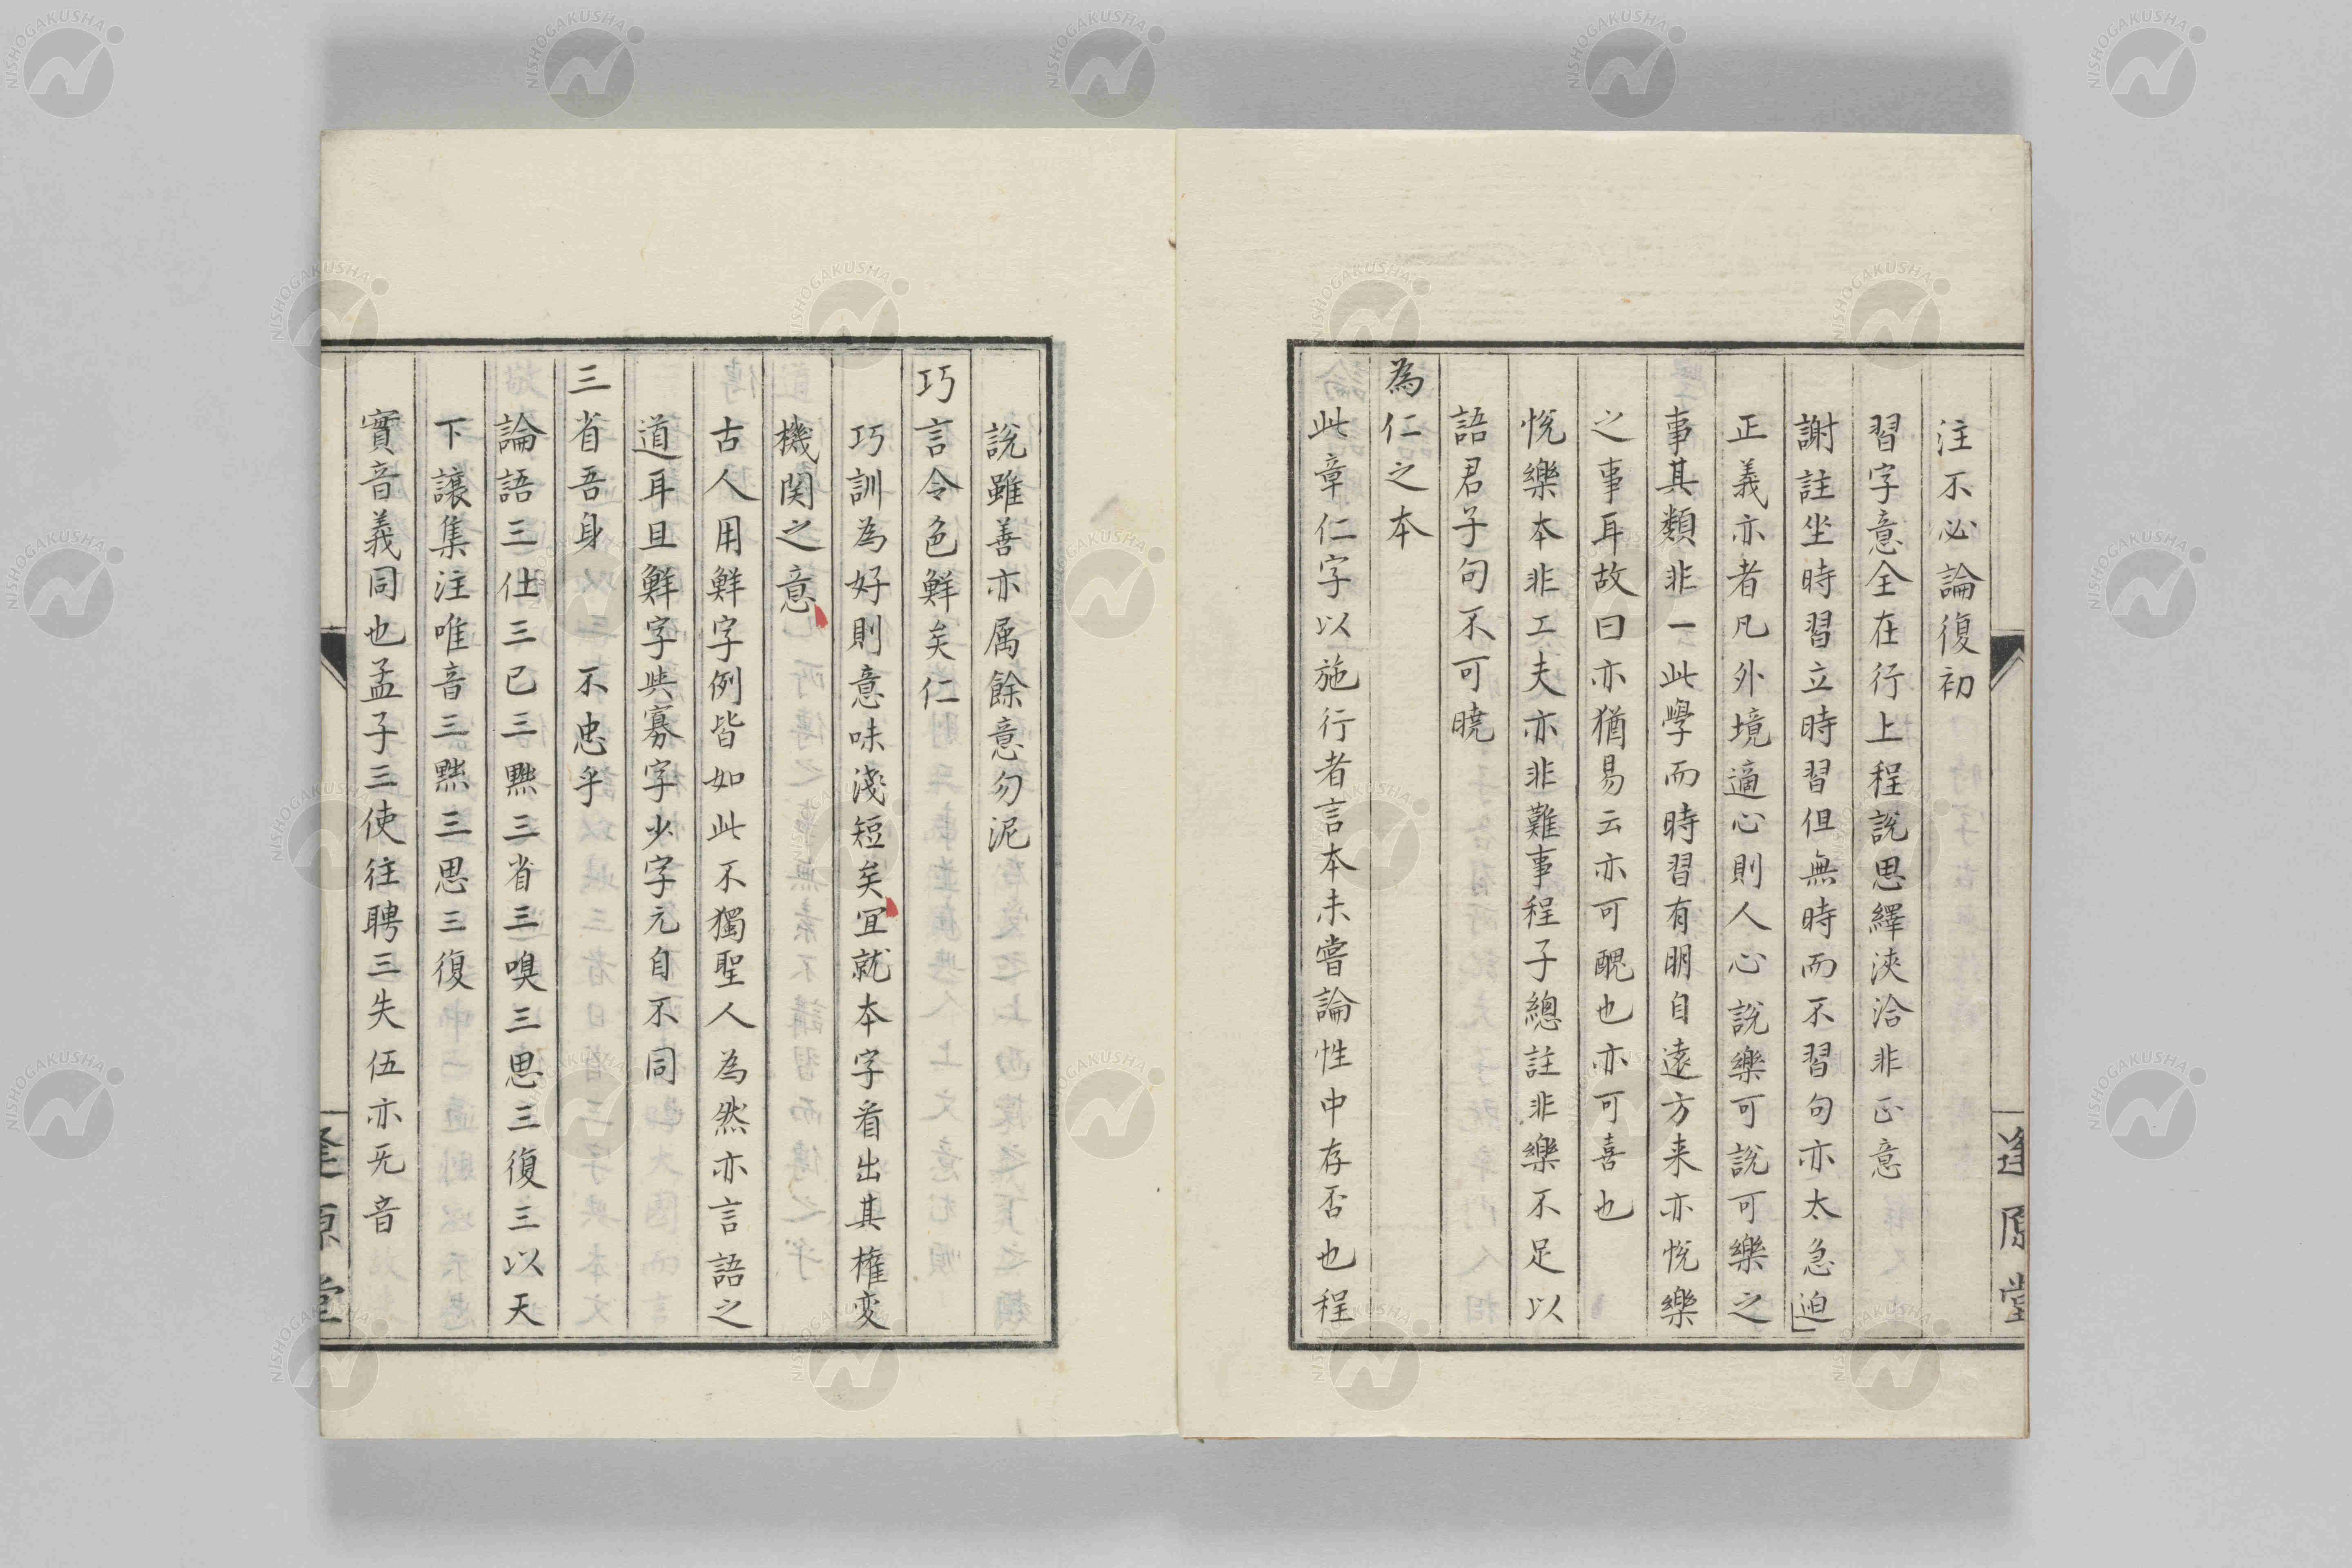 注不必論復初
習字意全在行上程說思繹浹洽非正意
謝註坐時習立時習但無時而不習句亦太急迫
正義亦者凡外境適心則人心說樂可說可樂之
事其類非一此學而時習有朋自遠方来亦悅樂
之事耳故曰亦猶易云亦可醜也亦可喜也
悅樂本非工夫亦非難事程子總註非樂不足以
語君子句不可曉
為仁之本
此章仁字以施行者言本未嘗論性中存否也程
逢原堂
說雖善亦属餘意勿泥
巧言令色鮮矣仁
巧訓為好則意味淺短矣宜就本字看出其權変
機関之意
古人用鮮字例皆如此不獨聖人為然亦言語之
道耳且鮮字與寡字少字元自不同
三省吾身 不忠乎
論語三仕三已三黜三省三嗅三思三復三以天
下讓集注唯音三黜三思三復
實音義同也孟子三使往聘三失伍亦无音
逢原堂
NISHOGAKUSHA